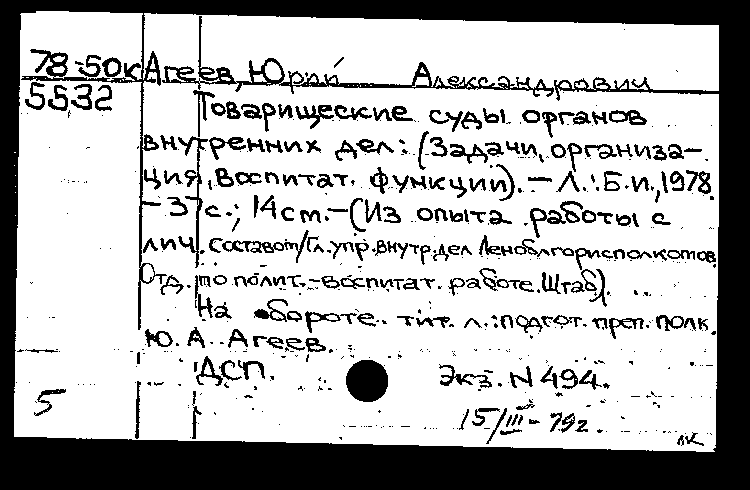 78-50к Агеев, Юрий Александрович
5532
Товарищеские суды органов
внутренних дел: (Задачи, организа-
ция, воспитат. функции). - Л.: Б.и., 1978.
- 37 с.; 14 см. - (Из опыта работы с
лич. составом/Гл. упр. внутр. дел Леноблгорисполкомов.
Отд. по полит.-воспитат. работе. Штаб).
На обороте тит. л.: подгот. преп. полк.
Ю. А. Агеев.
ДСП. Экз. N 494.
5
15/III - 79г.